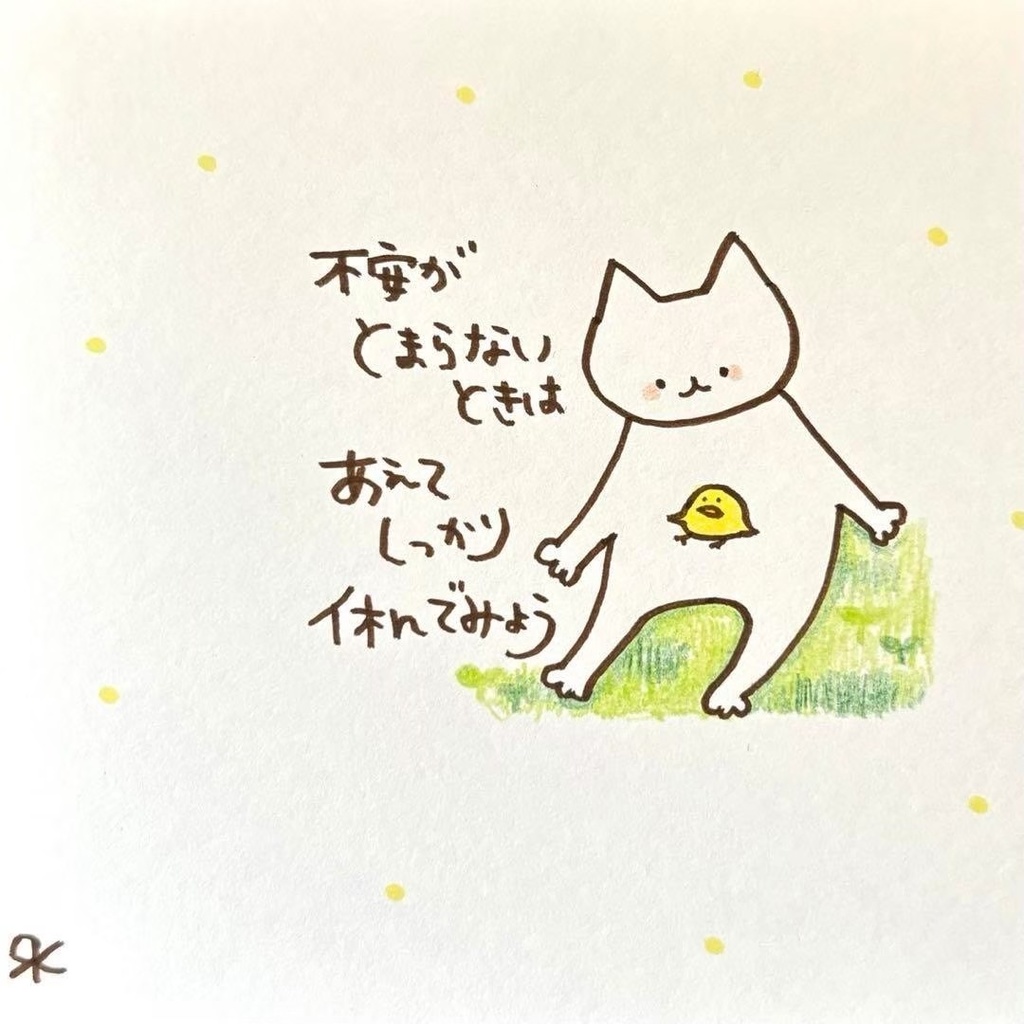 不安が
とまらない
ときは
あえて
しっかり
休んでみよう